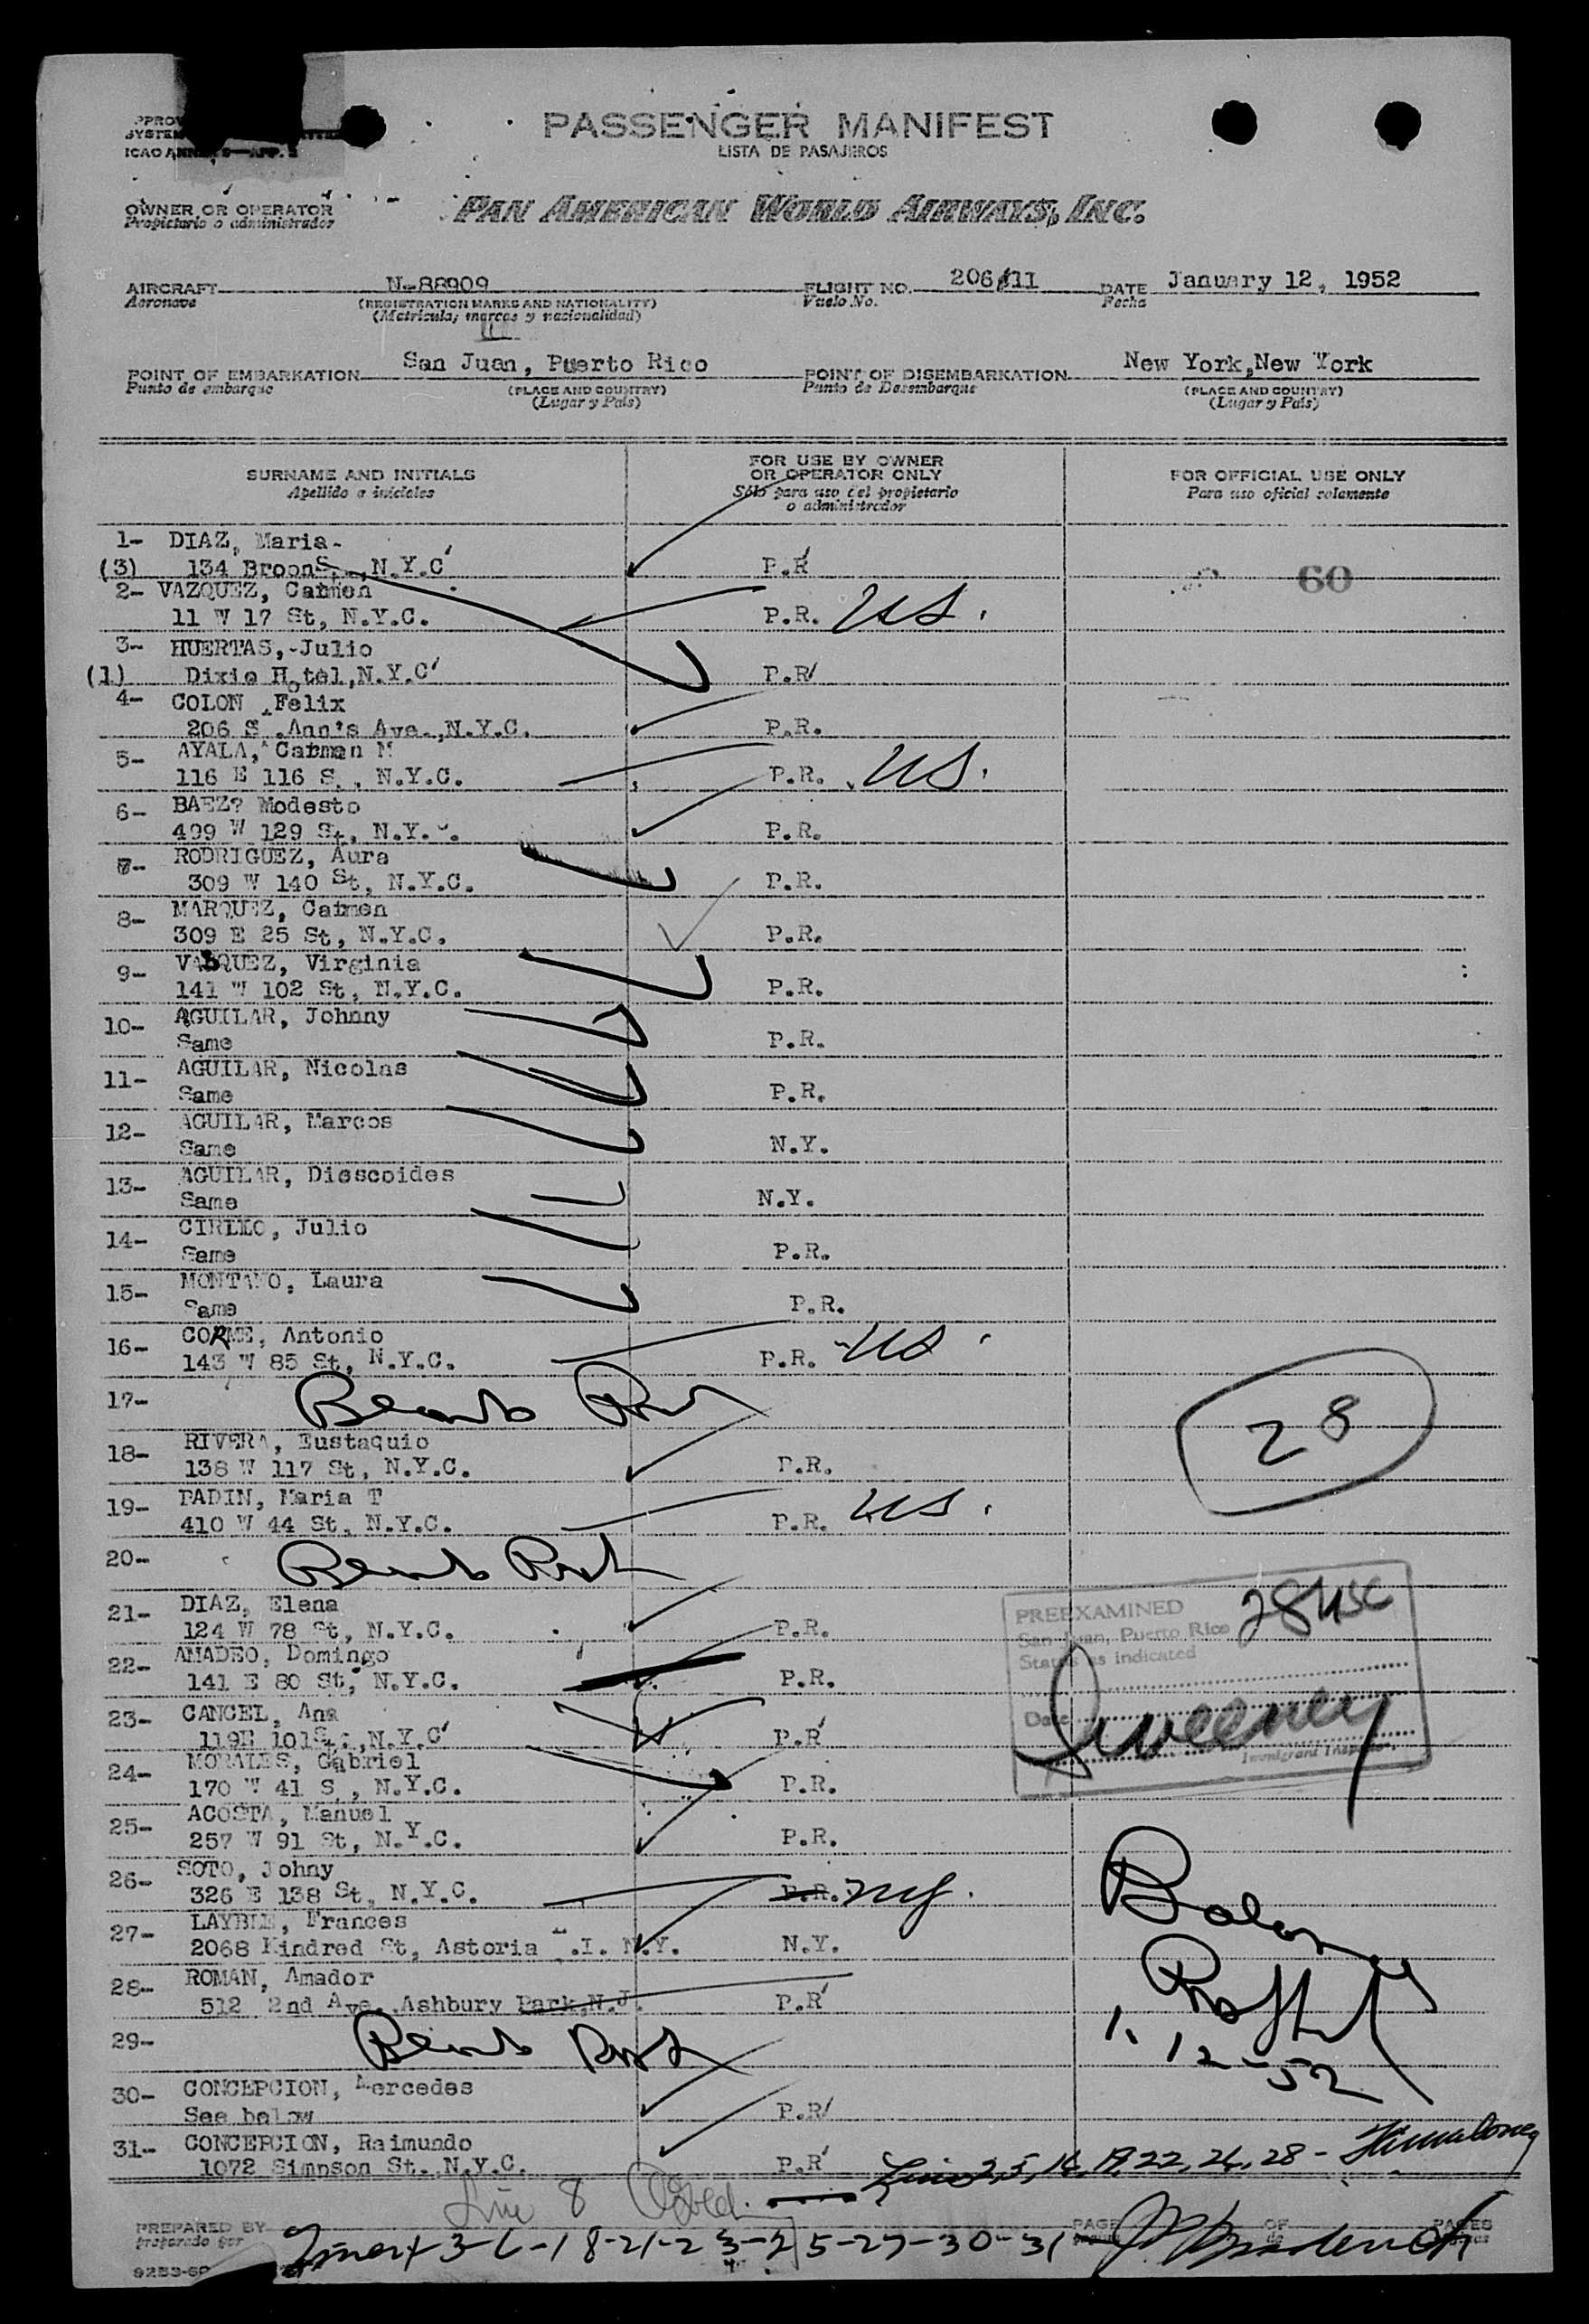 PASSENGER MANIFEST
LISTA DE PASAJEROS
OWNER OR OPERATOR
Propietario o administrador
PAN AMERICAN WORLD AIRWAYS, INC.
AIRCRAFT N-88909 FLIGHT NO. 206/11 DATE January 12, 1952
Aeronave (REGISTRATION MARKS AND NATIONALITY) Vuelo No. Fecha
(Matricula, marcas y nacionalidad)
POINT OF EMBARKATION San Juan, Puerto Rico POINT OF DISEMBARKATION New York,New York
Punto de embarque (PLACE AND COUNTRY) Punto de Desembarque (PLACE AND COUNTRY)
(Lugar y País) (Lugar y País)
SURNAME AND INITIALS FOR USE BY OWNER OR OPERATOR ONLY FOR OFFICIAL USE ONLY
Apellido e iniciales Sólo para uso del propietario o administrador Para uso oficial solamente
1- DIAZ, Maria
(3) 134 Broon , N.Y.C P.R 60
2- VAZQUEZ, Carmen
11 W 17 St, N.Y.C. P.R. US.
3- HUERTAS, Julio
(1) Dixie Hotel,N.Y.C P.R
4- COLON , Felix
206 S .Ann's Ave.,N.Y.C. P.R.
5- AYALA, Carmen M
116 E 116 S , N.Y.C. P.R. US.
6- BAEZ? Modesto
499 W 129 St, N.Y. . P.R.
7- RODRIGUEZ, Aura
309 W 140 St, N.Y.C. P.R.
8- MARQUEZ, Carmen
309 E 25 St, N.Y.C. P.R.
9- VASQUEZ, Virginia
141 W 102 St, N.Y.C. P.R.
10- AGUILAR, Johnny
Same P.R.
11- AGUILAR, Nicolas
Same P.R.
12- AGUILAR, Marcos
Same N.Y.
13- AGUILAR, Dioscoides
Same N.Y.
14- CIRILO, Julio
Same P.R.
15- MONTAVO, Laura
Same P.R.
16- CORME, Antonio
143 W 85 St, N.Y.C. P.R. US
17- 28
18- RIVERA, Eustaquio
138 W 117 St, N.Y.C. P.R.
19- PADIN, Maria T
410 W 44 St, N.Y.C. P.R. US.
20-
21- DIAZ, Elena
124 W 78 St, N.Y.C. P.R.
22- AMADEO, Domingo
141 E 80 St, N.Y.C. P.R.
23- CANCEL, Ana
119E 101St.,N.Y.C P.R
24- MORALES, Gabriel
170 W 41 S , N.Y.C. P.R.
25- ACOSTA, Manuel
257 W 91 St, N.Y.C. P.R.
PREEXAMINED 28 USC
San Juan, Puerto Rico
Status as indicated
Date Sweeney
Immigrant Inspector
26- SOTO, Johny
326 E 138 St, N.Y.C. P.R. NY.
27- LAYBLE, Frances
2068 Kindred St, Astoria L.I. N.Y. N.Y.
28- ROMAN, Amador
512 2nd Ave. Ashbury Park,N.J. P.R
29-
1-12-52
30- CONCEPCION, Mercedes
See below P.R
31- CONCEPCION, Raimundo
1072 Simpson St. N.Y.C. P.R
Line 2, 5, 16, 19, 22, 26, 28 -
Line 8
PREPARED BY PAGE OF PAGES
Preparado por
Line 1-4-3-6-18-21-23-25-27-30-31